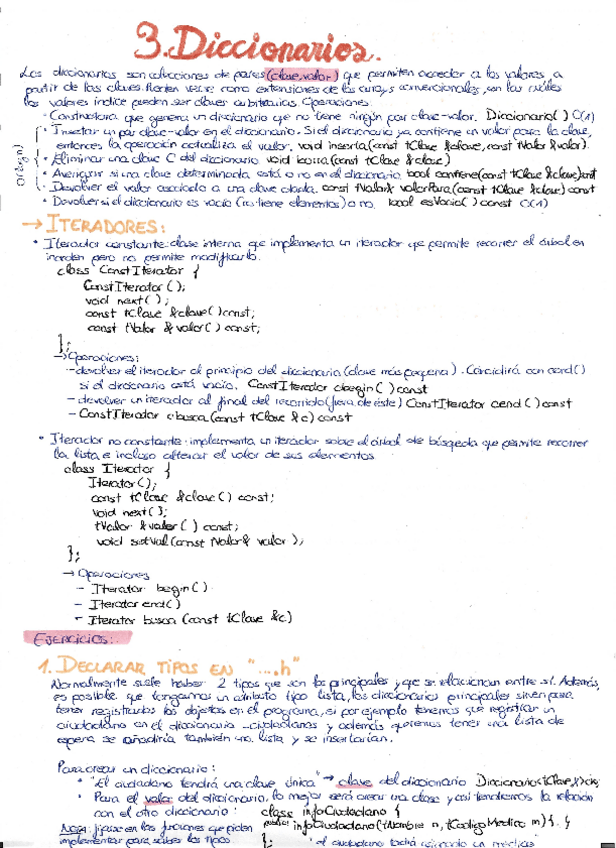 3. Diccionarios.
Los diccionarios son colecciones de pares (clave, valor) que permiten acceder a los valores a
partir de las claves. Pueden verse como extensiones de los arrays convencionales, en los cuales
los valores índice pueden ser claves arbitrarias. Operaciones:
· Constructora que genera un diccionario que no tiene ningún par clave-valor. Diccionario( ) O(1)
· Insertar un par clave-valor en el diccionario. Si el diccionario ya contiene un valor para la clave,
entonces la operación actualiza el valor. void inserta(const tClave &clave, const tValor &valor).
· Eliminar una clave C del diccionario void borra(const tClave &clave)
· Averiguar si una clave determinada está o no en el diccionario. bool contiene(const tClave &clave)const
· Devolver el valor asociado a una clave dada. const tValor& valorPara(const tClave &clave) const
· Devolver si el diccionario es vacío (no tiene elementos) o no. bool esVacio( ) const O(1)
O(log n)
→ ITERADORES:
· Iterador constante: clase interna que implementa un iterador que permite recorrer el árbol en
inorden pero no permite modificarlo.
class ConstIterator {
ConstIterator ( );
void next( );
const tClave &clave( )const;
const tValor & valor( ) const;
};
→ Operaciones:
- devolver el iterador al principio del diccionario (clave más pequeña). Coincidirá con cend( )
si el diccionario está vacío. ConstIterator cbegin( ) const
- devolver un iterador al final del recorrido (fuera de éste) ConstIterator cend( ) const
- ConstIterator cbusca(const tClave &c) const
· Iterador no constante: implementa un iterador sobre el árbol de búsqueda que permite recorrer
la lista e incluso alterar el valor de sus elementos
class Iterator {
Iterator( );
const tClave &clave( ) const;
void next( );
tValor &valor( ) const;
void setVal(const tValor& valor );
};
→ Operaciones
- Iterator begin( )
- Iterador end( )
- Iterator busca (const tClave &c)
EJERCICIOS:
1. DECLARAR TIPOS EN "....h"
Normalmente suele haber 2 tipos que son los principales y que se relacionan entre sí. Además,
es posible que tengamos un atributo tipo lista, los diccionarios principales sirven para
tener registrados los objetos en el programa, si por ejemplo tenemos que registrar un
ciudadano en el diccionario _ciudadanos y además queremos tener una lista de
espera se añadiría también una lista y se insertarían.
Para crear un diccionario:
· "El ciudadano tendrá una clave única" → clave del diccionario Diccionario<tClave,
· Para el valor del diccionario, lo mejor será crear una clase y así tendremos la relación
con el otro diccionario: class infoCiudadano {
Nota: fijarse en las funciones que piden public infoCiudadano(tNombre n, tCodigoMedico m){ }
implementar para saber los tipos. };